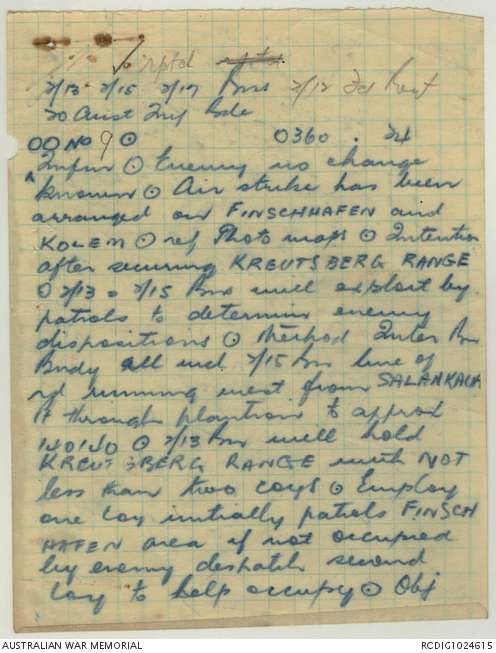 rptd
2/13 2/15 2/17 Bns 2/12 Fd Regt
20 Aust Inf Bde
OO No 9 ⊙ 0360 . 24
Infm ⊙ Enemy no change
known ⊙ Air strike has been
arranged on FINSCHHAFEN and
KOLEM ⊙ ref Photo maps ⊙ Intention
after securing KREUTSBERG RANGE
2/13 2/15 Bns will exploit by
patrols to determine enemy
dispositions ⊙ Method Inter Bn
Bndy all incl 2/15 Bn line of
rd running west from SALANKAUA
Pt through plantation to approx
⊙ 2/13 Bn will hold
KREUTSBERG RANGE with NOT
less than two coys ⊙ Employ
one coy initially patrols FINSCH
HAFEN area if not occupied
by enemy despatch second
coy to help occupy ⊙ Obj
AUSTRALIAN WAR MEMORIAL RCDIG1024615